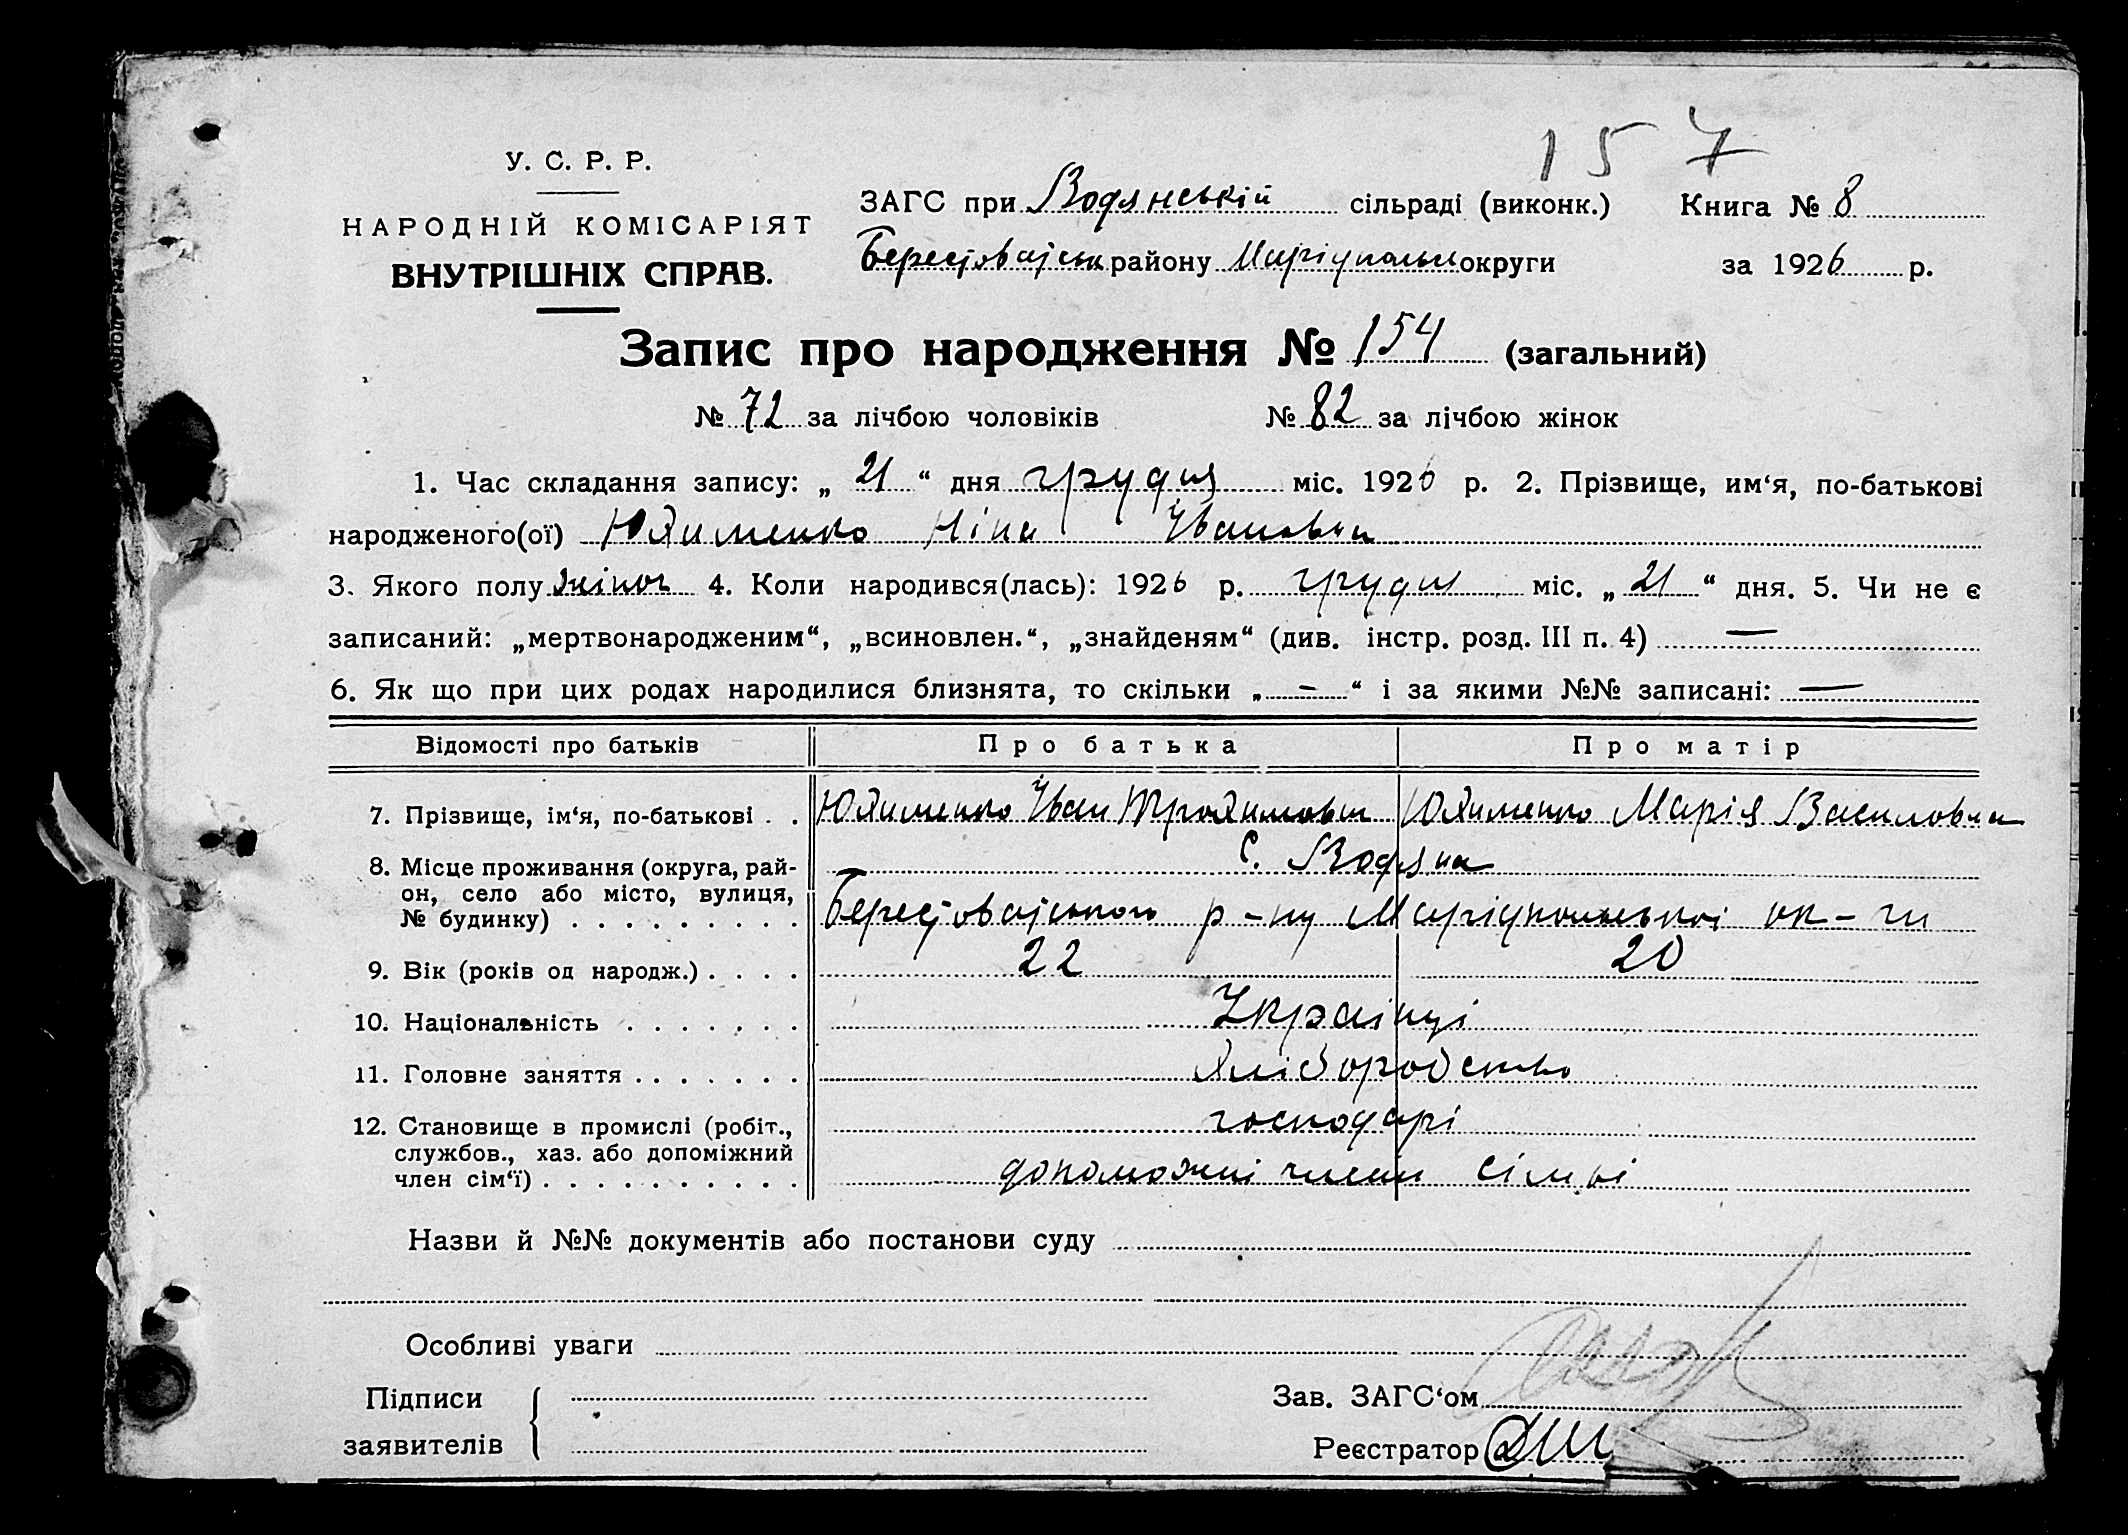 157
У. С. Р. Р.
НАРОДНІЙ КОМІСАРІЯТ
ВНУТРІШНІХ СПРАВ.
ЗАГС при Водянській сільраді (виконк.) Книга № 8
району округи за 1926 р.
Запис про народження № 154 (загальний)
№ 72 за лічбою чоловіків № 82 за лічбою жінок
1. Час складання запису: „ 21 “ дня грудня міс. 1926 р. 2. Прізвище, им‘я, по-батькові
народженого(ої) Юхименко Ніна Івановна
3. Якого полу жіноч 4. Коли народився(лась): 1926 р. грудня міс. „ 21 “ дня. 5. Чи не є
записаний: „мертвонародженим“, „всиновлен.“, „знайденям“ (див. інстр. розд. III п. 4) —
6. Як що при цих родах народилися близнята, то скільки „ - “ і за якими №№ записані: —
Відомості про батьків Про батька Про матір
7. Прізвище, ім‘я, по-батькові . . Юхименко Іван Трохимович Юхименко Марія Василовна
8. Місце проживання (округа, рай-
он, село або місто, вулиця,
№ будинку) . . . . . . . . .
с. Водяна
Берестовацького р-ну Маріупольської ок-ги
9. Вік (років од народж.) . . . . 22 20
10. Національність . . . . . . . Українці
11. Головне заняття . . . . . . . Хліборобство
12. Становище в промислі (робіт.,
службов., хаз. або допоміжний
член сім‘ї) . . . . . . . . . .
господарі
допоможні члени сімьі
Назви й №№ документів або постанови суду
Особливі уваги
Підписи
заявителів
Зав. ЗАГС‘ом
Реєстратор